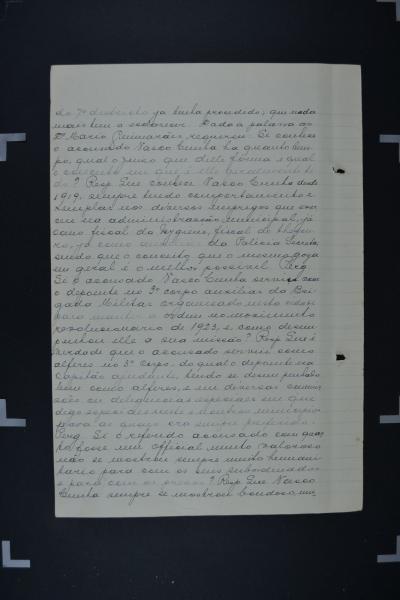 do 7º districto já tinha procedido; que nada
mais tem a esclarecer. Dada a palavra ao
Dr Mario Guimarães requereu: Se conhece
o accusado Vasco Cunha ha quanto tem-
po, qual o juizo que delle forma e qual
o conceito em que é elle geralmente ti-
do? Resp. Que conhece Vasco Cunha desde
1919, sempre tendo comportamento e-
xemplar nos diversos empregos que exer-
ceu na administração municipal, já
como fiscal da hygiene, fiscal do
já como da Policia
sendo que o conceito que o mesmo goza
em geral é o melhor possivel. Perg.
Se o accusado Vasco Cunha serviu com
o depoente no 3º corpo auxiliar da Bri-
gada Militar organisado nesta cidade
para manter a ordem no movimento
revolucionario de 1923, e como desem-
penhou elle a sua missão? Resp. Que é
verdade que o accusado serviu como
alferes no 3º corpo, do qual o depoente era
capitão ajudante, tendo se desempenhado
bem como alferes, e em diversas commis-
sões ou deligencias especiaes em que
digo especiaes neste e n'outros municipios
para as quaes era sempre preferido.
Perg. Se o referido accusado com quan-
to fosse um official muito valoroso
não se mostrou sempre muito humani-
tario para com os seus subordinados
e para com os presos? Resp. Que Vasco
Cunha sempre se mostrou bondoso,